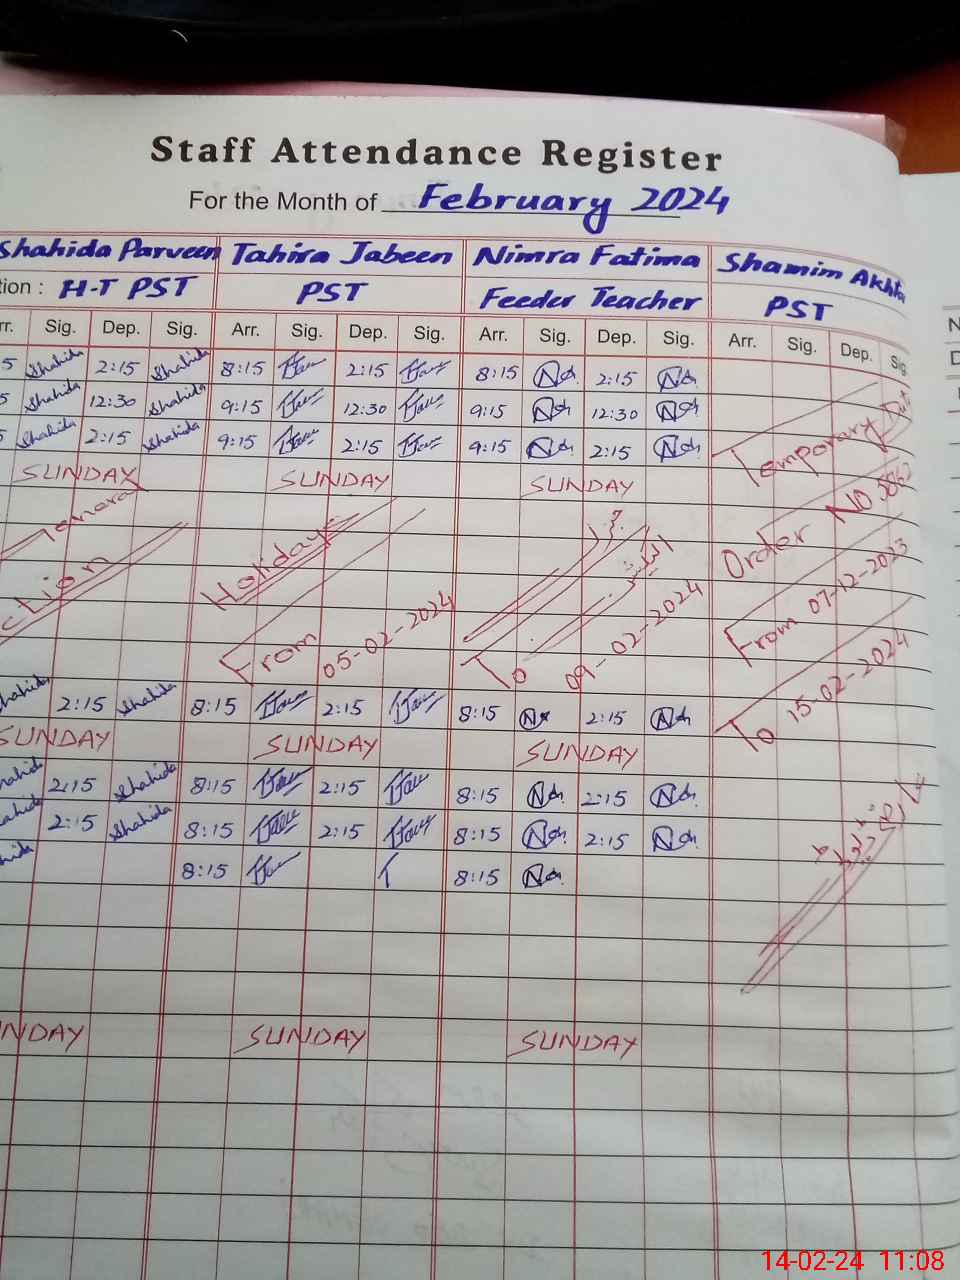 Staff Attendance Register
For the Month of February 2024
Shahida Parveen Tahira Jabeen Nimra Fatima Shamim
tion : H-T PST PST Feeder Teacher PST
rr. Sig. Dep. Sig. Arr. Sig. Dep. Sig. Arr. Sig. Dep. Sig. Arr. Sig. Dep. Sig
5 Shahida 2:15 Shahida 8:15 2:15 8:15 2:15
5 Shahida 12:30 Shahida 9:15 12:30 9:15 12:30
5 Shahida 2:15 Shahida 9:15 2:15 9:15 2:15
Temporary
SUNDAY SUNDAY SUNDAY
Order No.
Holidays
ction الیکشن
From 05-02-2024 To 09-02-2024
From 07-12-2023
To 15-02-2024
Shahida 2:15 Shahida 8:15 2:15 8:15 2:15
SUNDAY SUNDAY SUNDAY
hahida 2:15 Shahida 8:15 2:15 8:15 2:15
ahida 2:15 Shahida 8:15 2:15 8:15 2:15
hida 8:15 8:15
NDAY SUNDAY SUNDAY
14-02-24 11:08